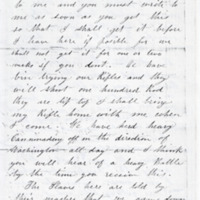 to me and you must write to
me as soon as you get this
so that I shall get it before
I leave here if possible for we
shall not get it for one or two
weeks if you dont. We have
been trying our Rifles and they
will shoot one hundred Rod
they are tip top I shall bring
my Rifle home with me when
I come. We have herd heavy
Cannonading off in the direction of
Washington all day and I think
you will hear of a heavy Battle
by the time you receive this.
The Slaves here are told by
their masters that we came down